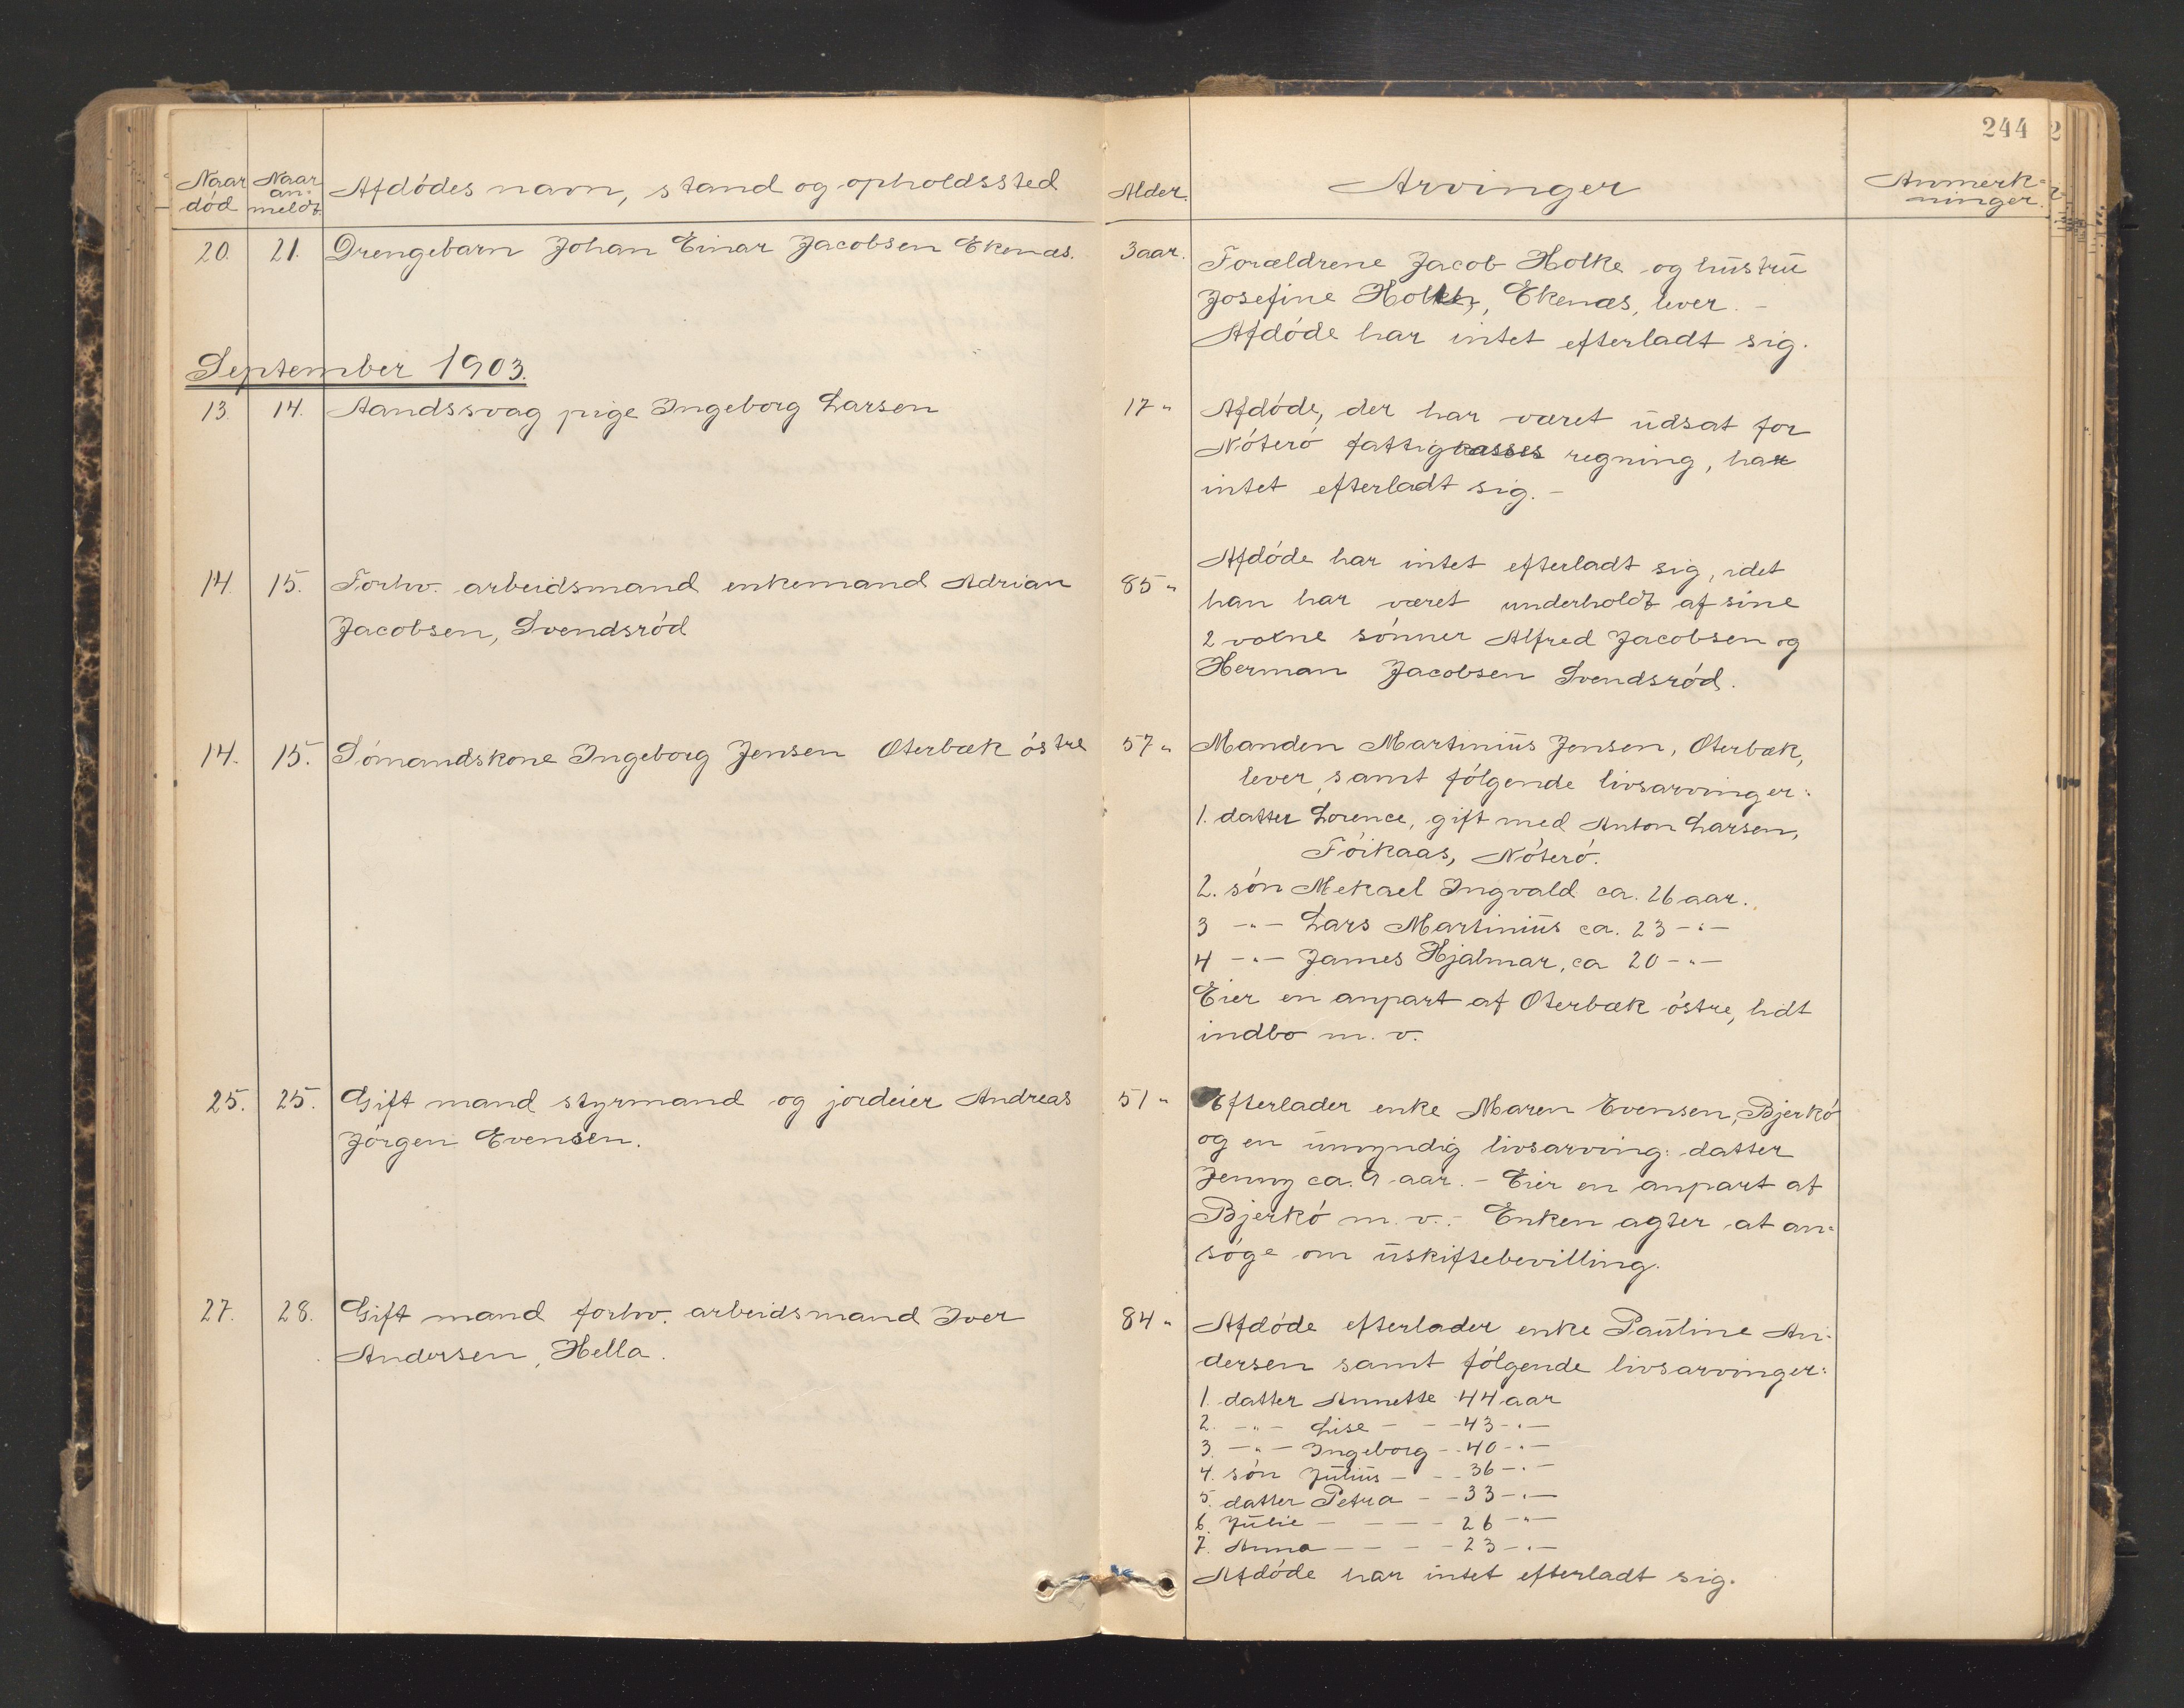 244
2
Naar død
Naar an- meldt.
Afdødes navn, stand og opholdssted
Alder.
Arvinger
Anmerk- ninger.
20. 21. Drengebarn Johan Einar Jacobsen Ekenæs. 3 aar.
Forældrene Jacob Holke og hustru
Josefine Holke, Ekenæs, lever. -
Afdøde har intet efterladt sig.
September 1903.
13. 14. Aandssvag pige Ingeborg Larsen 17 "
Afdøde, der har været udsat for
Nøterø fattigkasses regning, har
intet efterladt sig. -
14. 15. Forhv. arbeidsmand enkemand Adrian
Jacobsen, Svendsrød
85 "
Afdøde har intet efterladt sig, idet
han har været underholdt af sine
2 voxne sønner Alfred Jacobsen og
Herman Jacobsen Svendsrød.
14. 15. Sømandskone Ingeborg Jensen Oterbæk østre 57 "
Manden Martinius Jensen, Oterbæk,
lever, samt følgende livsarvinger:
1. datter Lorence, gift med Anton Larsen,
Föikaas, Nøterø.
2. søn Mekael Ingvald ca. 26 aar.
3 -"- Lars Martinius ca. 23 -"-
4 -"- James Hjalmar, ca 20 -"-
Eier en anpart af Oterbæk østre, lidt
indbo m. v.
25. 25. Gift mand styrmand og jordeier Andreas
Jørgen Evensen.
51 "
Efterlader enke Maren Evensen, Bjerkø
og en umyndig livsarving: datter
Jenny ca. 9 aar. - Eier en anpart af
Bjerkø m. v. - Enken agter at an-
søge om uskiftebevilling.
27. 28. Gift mand forhv. arbeidsmand Iver
Andersen, Hella.
84 "
Afdøde efterlader enke Pauline An-
dersen samt følgende livsarvinger:
1. datter Annette 44 aar
2. -"- Lise - - 43 -"-
3. -"- Ingeborg - 40 -"-
4. søn Julius - - 36 -"-
5. datter Petra - - 33 -"-
6. Julie - - - - 26 -"-
7. Anna - - - - 23 -"-
Afdøde har intet efterladt sig.